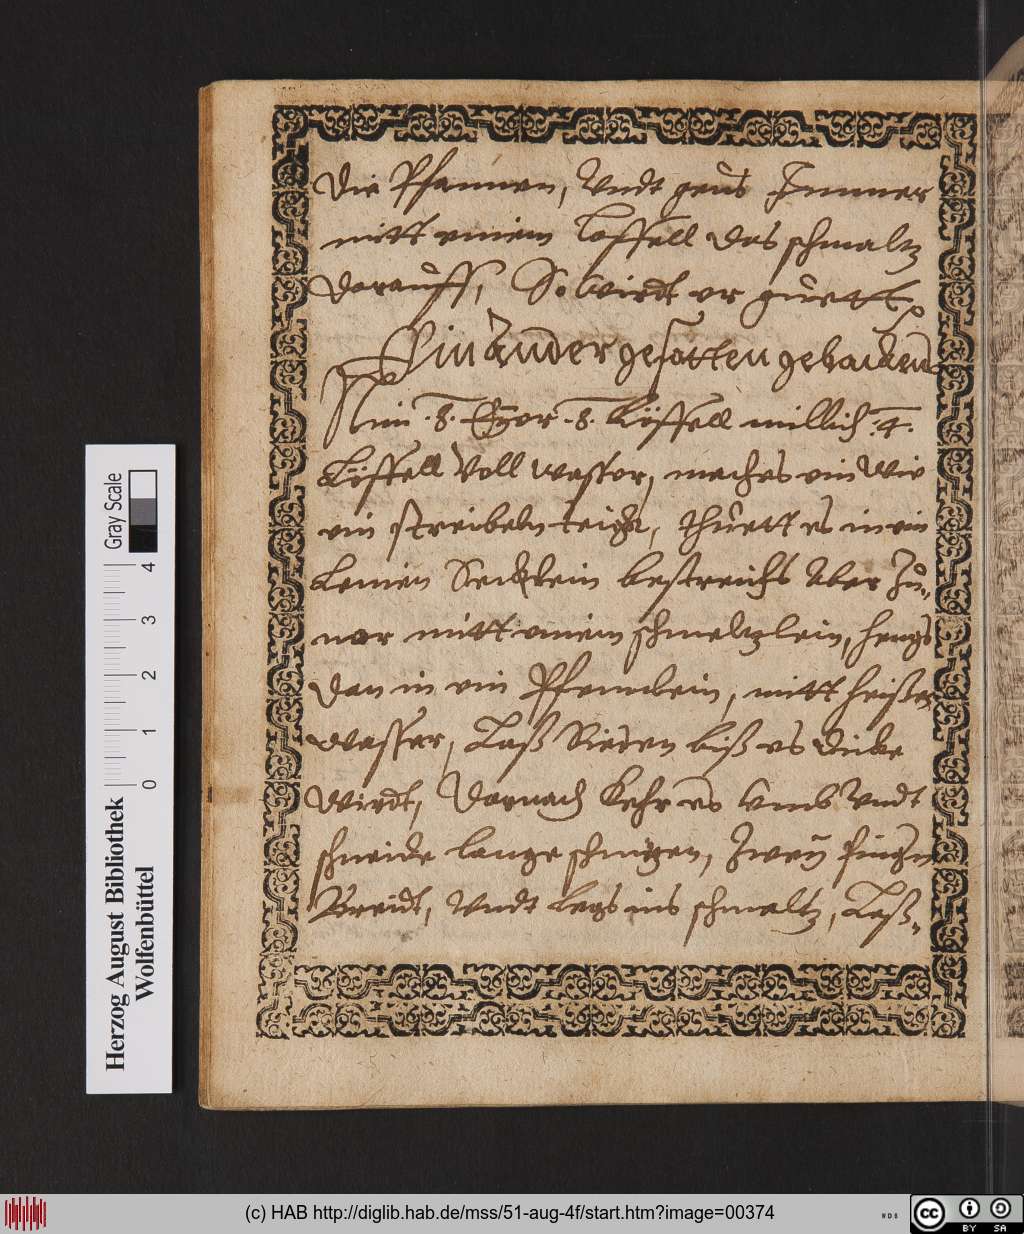 die Pfannen, Vndt geus Immer
mitt einem loffell das schmaltz
darauff, So wirdt er guett
Ein ander gesotten gebackens
Nim .8. Eyer .8. Löffell millich .4.
Löffell Voll wasser, mach es ein wie
ein streibeln teigh, thuett es in ein
Leinen Secklein bestreichs Aber Zu-
uor mitt einem schmeltzlein, hengs
dan in ein Pfennlein, mitt heißen
wasser, Laß Sieden biß es dicke
wirdt, darnach kehr es Vmb Vndt
schneide lange schnitzen, Zwey finger
Breidt, Vndt legs ins schmaltz, Laß-
Herzog August Bibliothek
Wolfenbüttel
0 1 2 3 4
Gray Scale
(c) HAB http://diglib.hab.de/mss/51-aug-4f/start.htm?image=00374
WDB
cc
BY SA